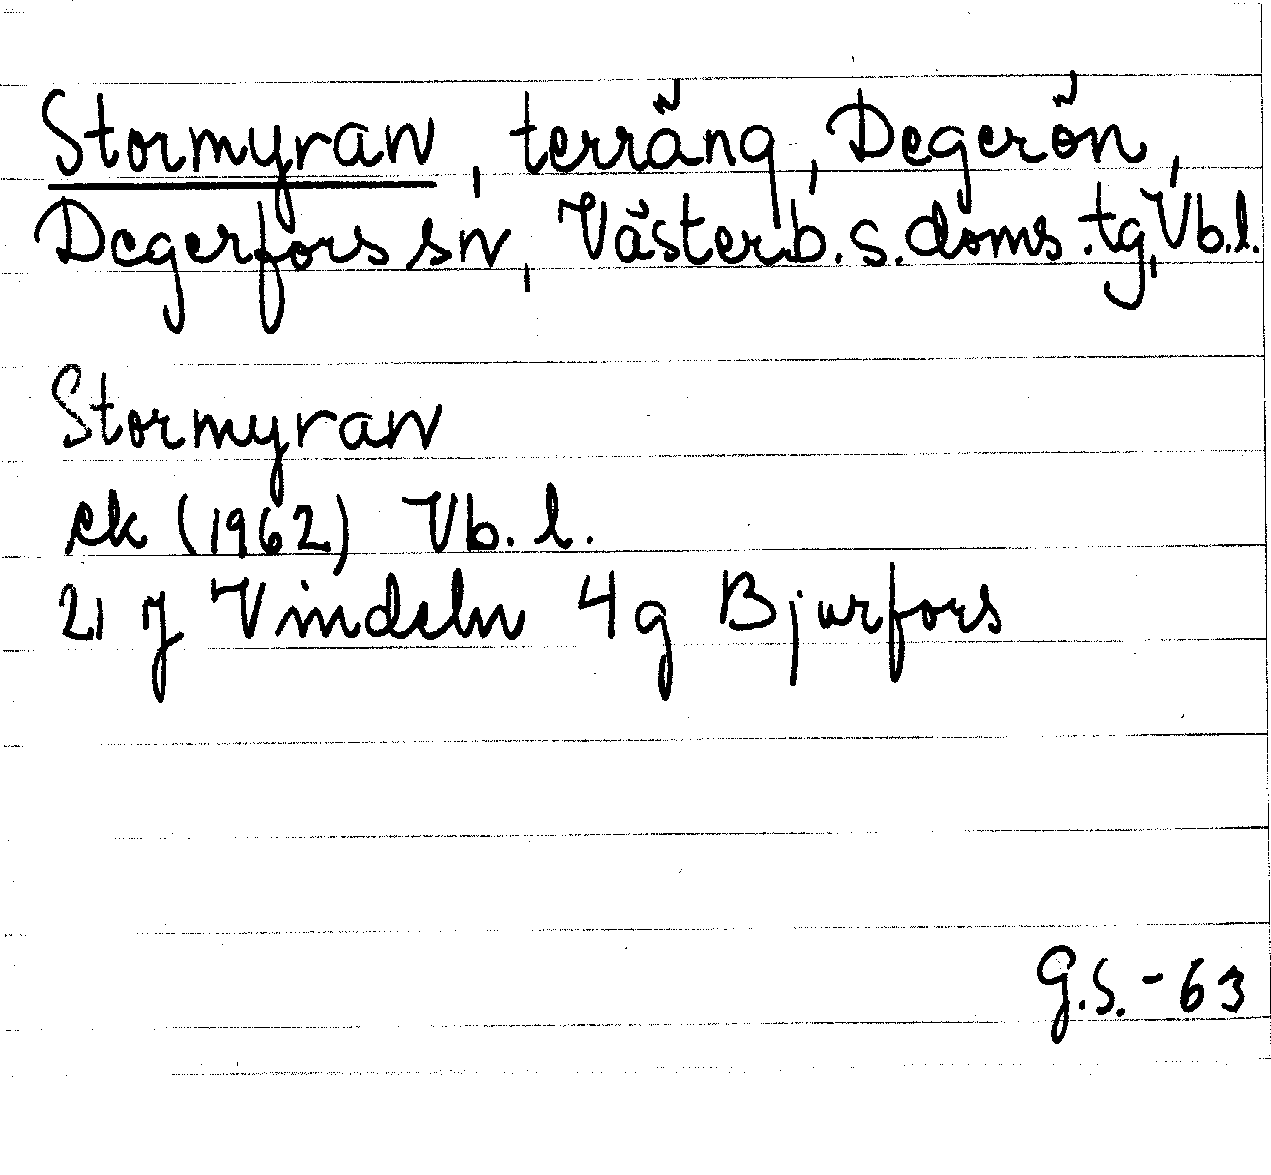 Stormyran, terräng, Degerön,
Degerfors sn, Västerb. s. doms. tg, Vb. l.
Stormyran
ek (1962) Vb. l.
21 J Vindeln 4g Bjurfors
G.S. - 63